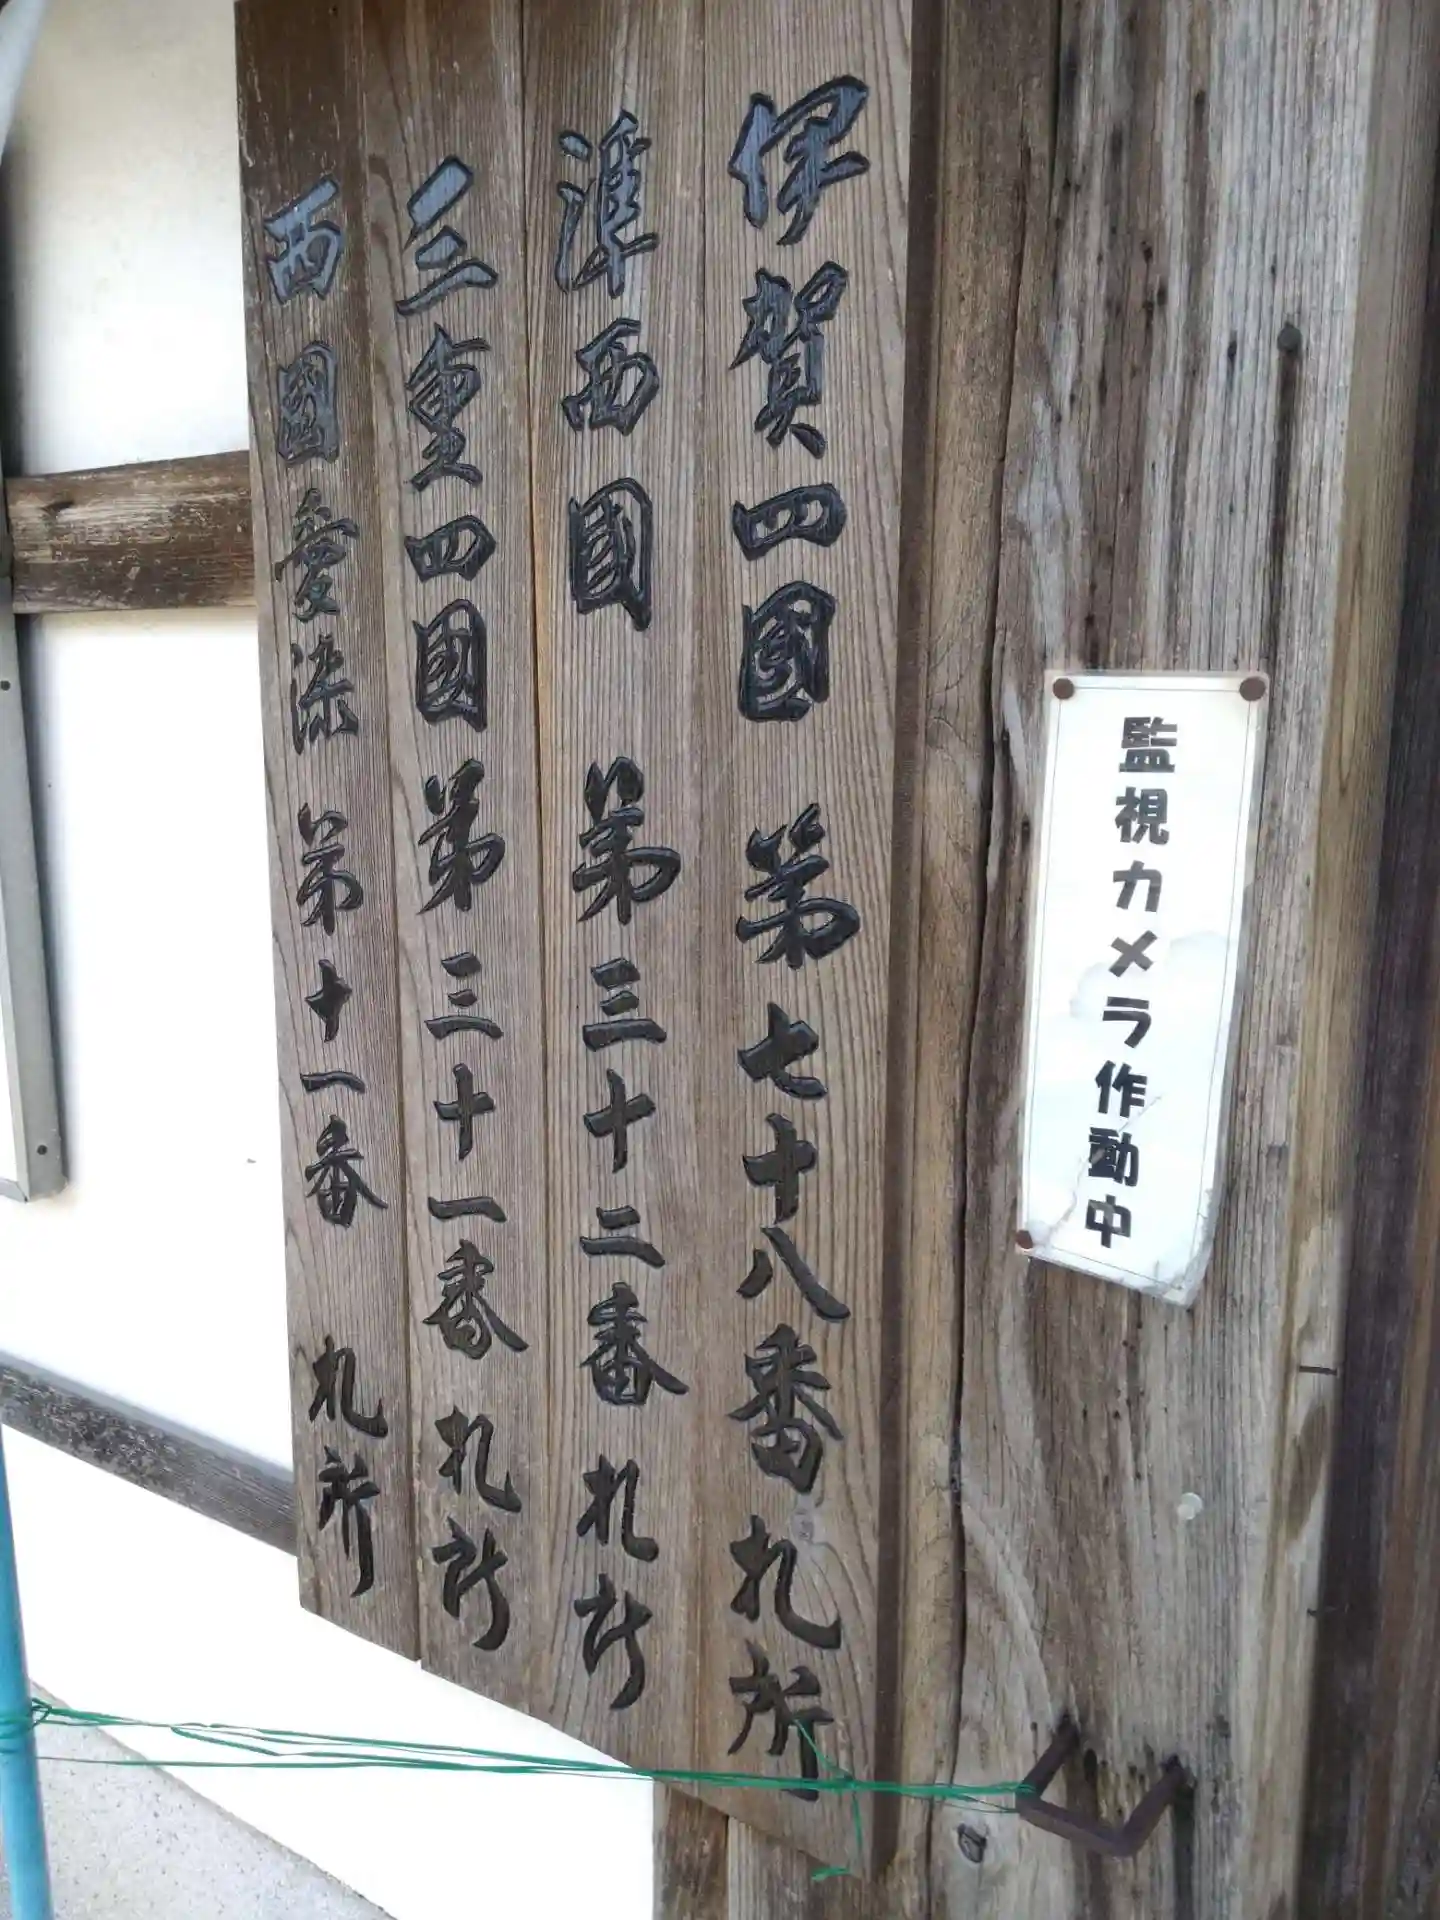 監視カメラ作動中
伊賀四國 第七十八番 札所
準西國 第三十二番 札所
三重四國 第三十一番 札所
西國愛染 第十一番 札所